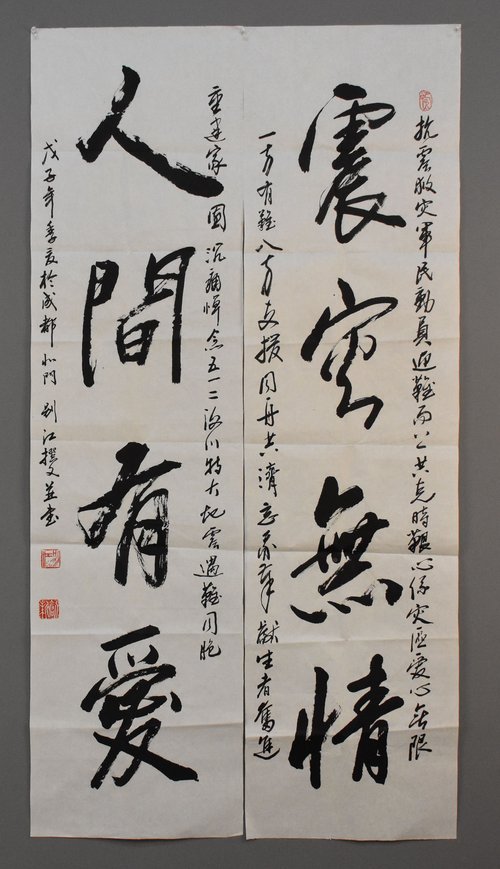 抗震救灾軍民動員迎難而上共克時艱心係灾區爱心無限
震灾無情
一方有難八方支援同舟共濟忘我奉獻生者奮進
重建家園沉痛悼念五一二汶川特大地震遇難同胞
人間有愛
戊子年季夏於成都北門 江撰文並書